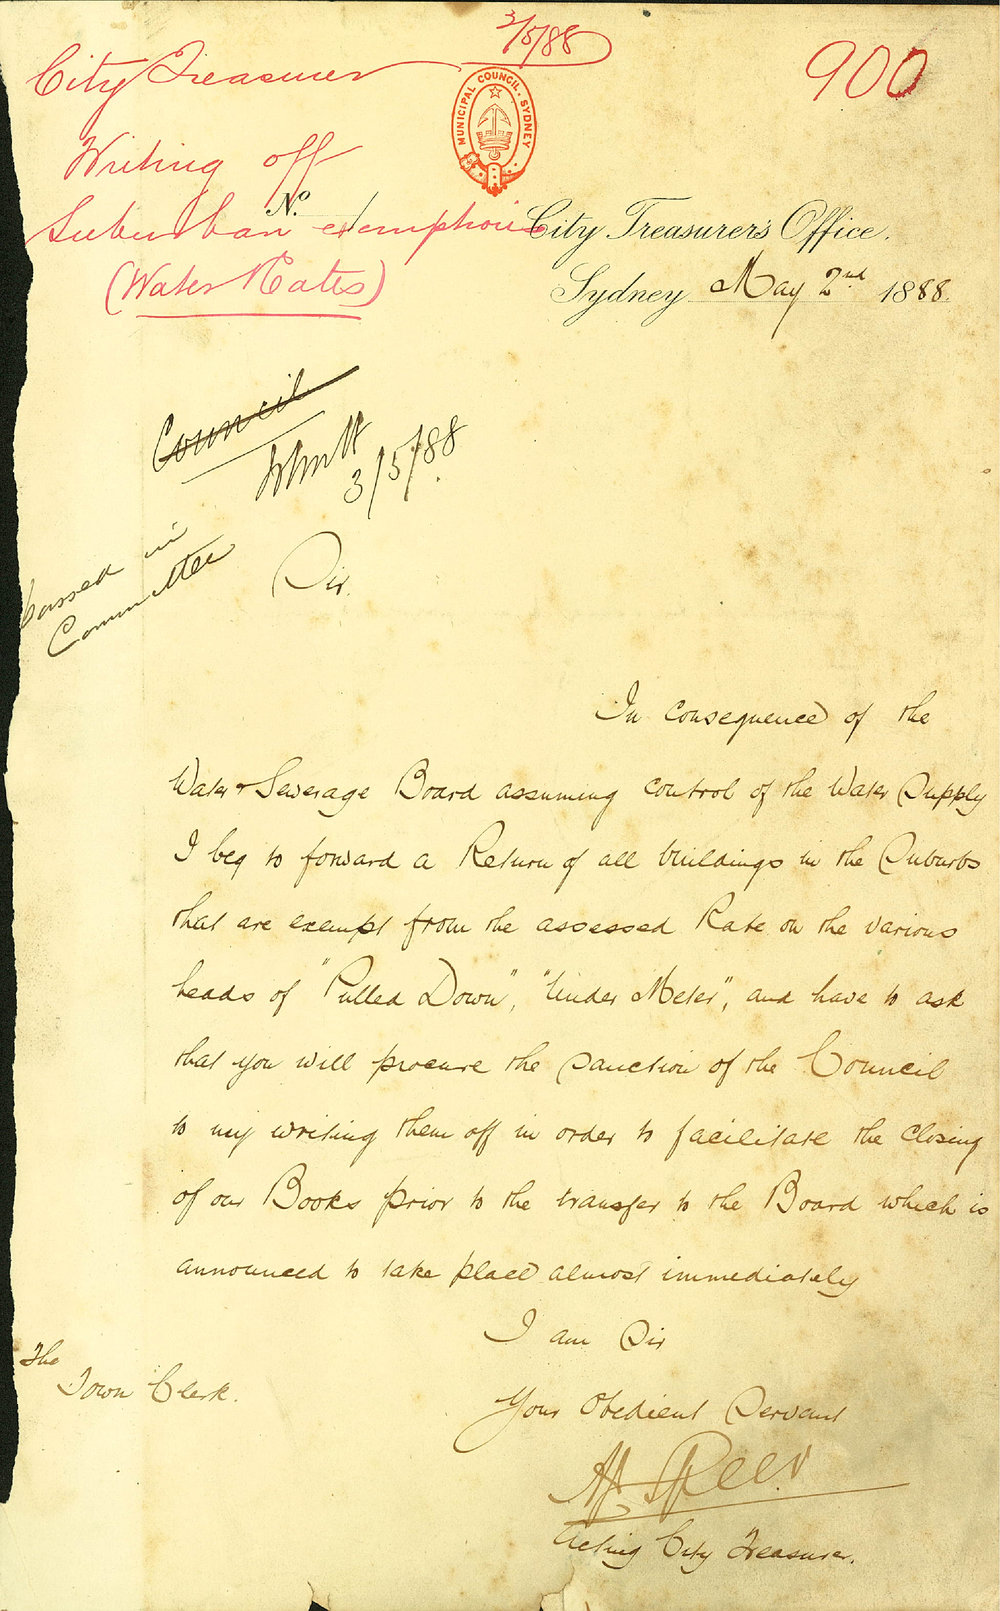 3/5/88
City Treasurer
900
MUNICIPAL COUNCIL · SYDNEY
Writing off
Suburban exemptions
(Water Rates)
No.
City Treasurer's Office.
Sydney May 2nd 1888.
Council
3/5/88.
passed in
Committee
Sir.
In consequence of the
Water & Sewerage Board assuming control of the Water Supply
I beg to forward a Return of all buildings in the Suburbs
that are exempt from the assessed Rate on the various
heads of "Pulled Down", "Under Meter", and have to ask
that you will procure the sanction of the Council
to my writing them off in order to facilitate the closing
of our Books prior to the transfer to the Board which is
announced to take place almost immediately
I am Sir
The
Town Clerk.
Your Obedient Servant
Acting City Treasurer.